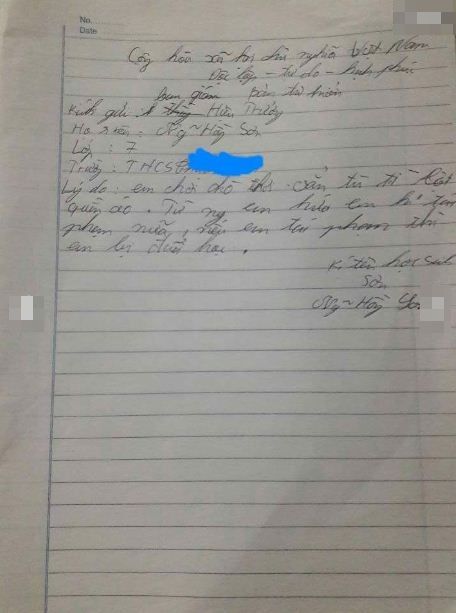 No.
Date
Cộng hòa xã hội chủ nghĩa Việt Nam
Độc lập - tự do - hạnh phúc
ban giám
Kính gửi: thầy Hiệu Trưởng
Họ và tên: Ng~ Hồng Sơn
Lớp : 7
Trường : THCS
Lý do : em chơi đồ thư
quần áo . Từ ny em hứa em k tái
phạm nữa, nếu em tái phạm thì
em bị đuổi học .
Kí tên học sinh
Sơn
Ng~ Hồng Sơn